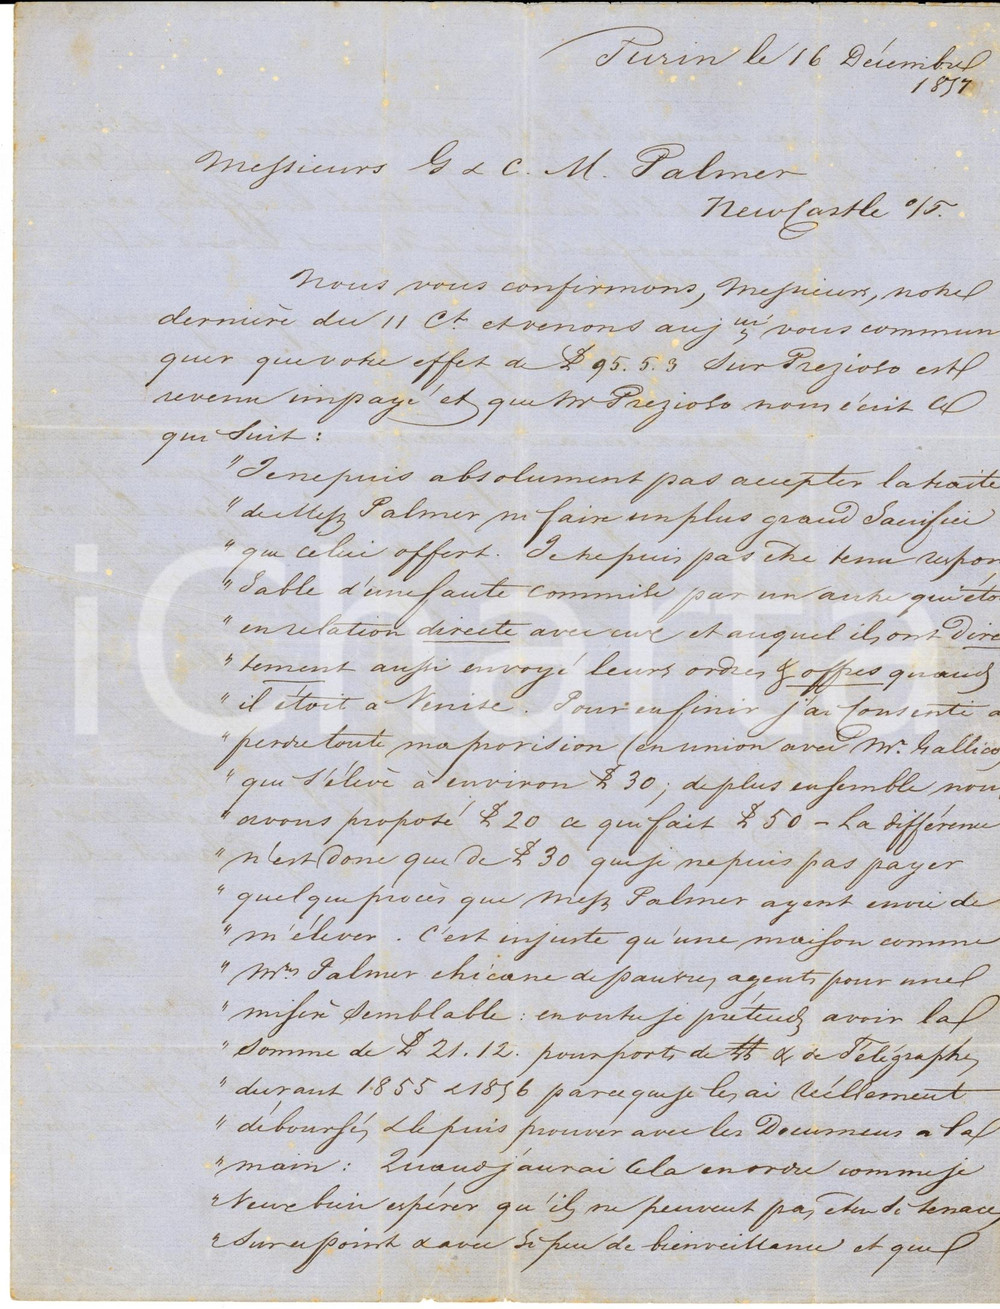 Turin le 16 Décembre
1857
Messieurs G & C. M. Palmer
NewCastle o/T.
Nous vous confirmons, Messieurs, notre
dernière du 11 Ct. et venons auj ui vous commun
quer que votre effet de £ 95. 5. 3 sur Prezioso est
revenu impayé et que Mr Prezioso nous écrit ce
qui suit :
" Je ne puis absolument pas accepter la traite
" de Mess Palmer ni faire un plus grand Sacrifice
" que celui offert. Je ne puis pas être tenu respon
" sable d'une faute commise par un autre qui éto
" en relation directe avec eux et auquel ils ont direc
" tement aussi envoyé leurs ordres & offres quand
" il étoit à Venise. Pour en finir j'ai Consenti a
" perdre toute ma provision (en union avec Mr. Gallico
" que s'élève à environ £ 30 ; de plus ensemble, nous
" avons proposé £ 20 ce qui fait £ 50 - La différence
" n'est donc que de £ 30 que je ne puis pas payer
" quelque procès que Mess Palmer ayent envie de
" m'élever. C'est injuste qu'une maison comme
" Mrs Palmer chicane de pauvres agents pour une
" misère semblable : en outre je prétends avoir la
" Somme de £ 21. 12. pour ports de & de Télégraphe,
" durant 1855 & 1856 parce que je les ai réellement
" déboursés & le puis prouver avec les Documens a la
" main : Quand j'aurai cela en ordre comme je
" Veux bien espérer qu'ils ne peuvent pas être si tenaces
" sur ce point & avec si peu de bienveillance et que
iCharta